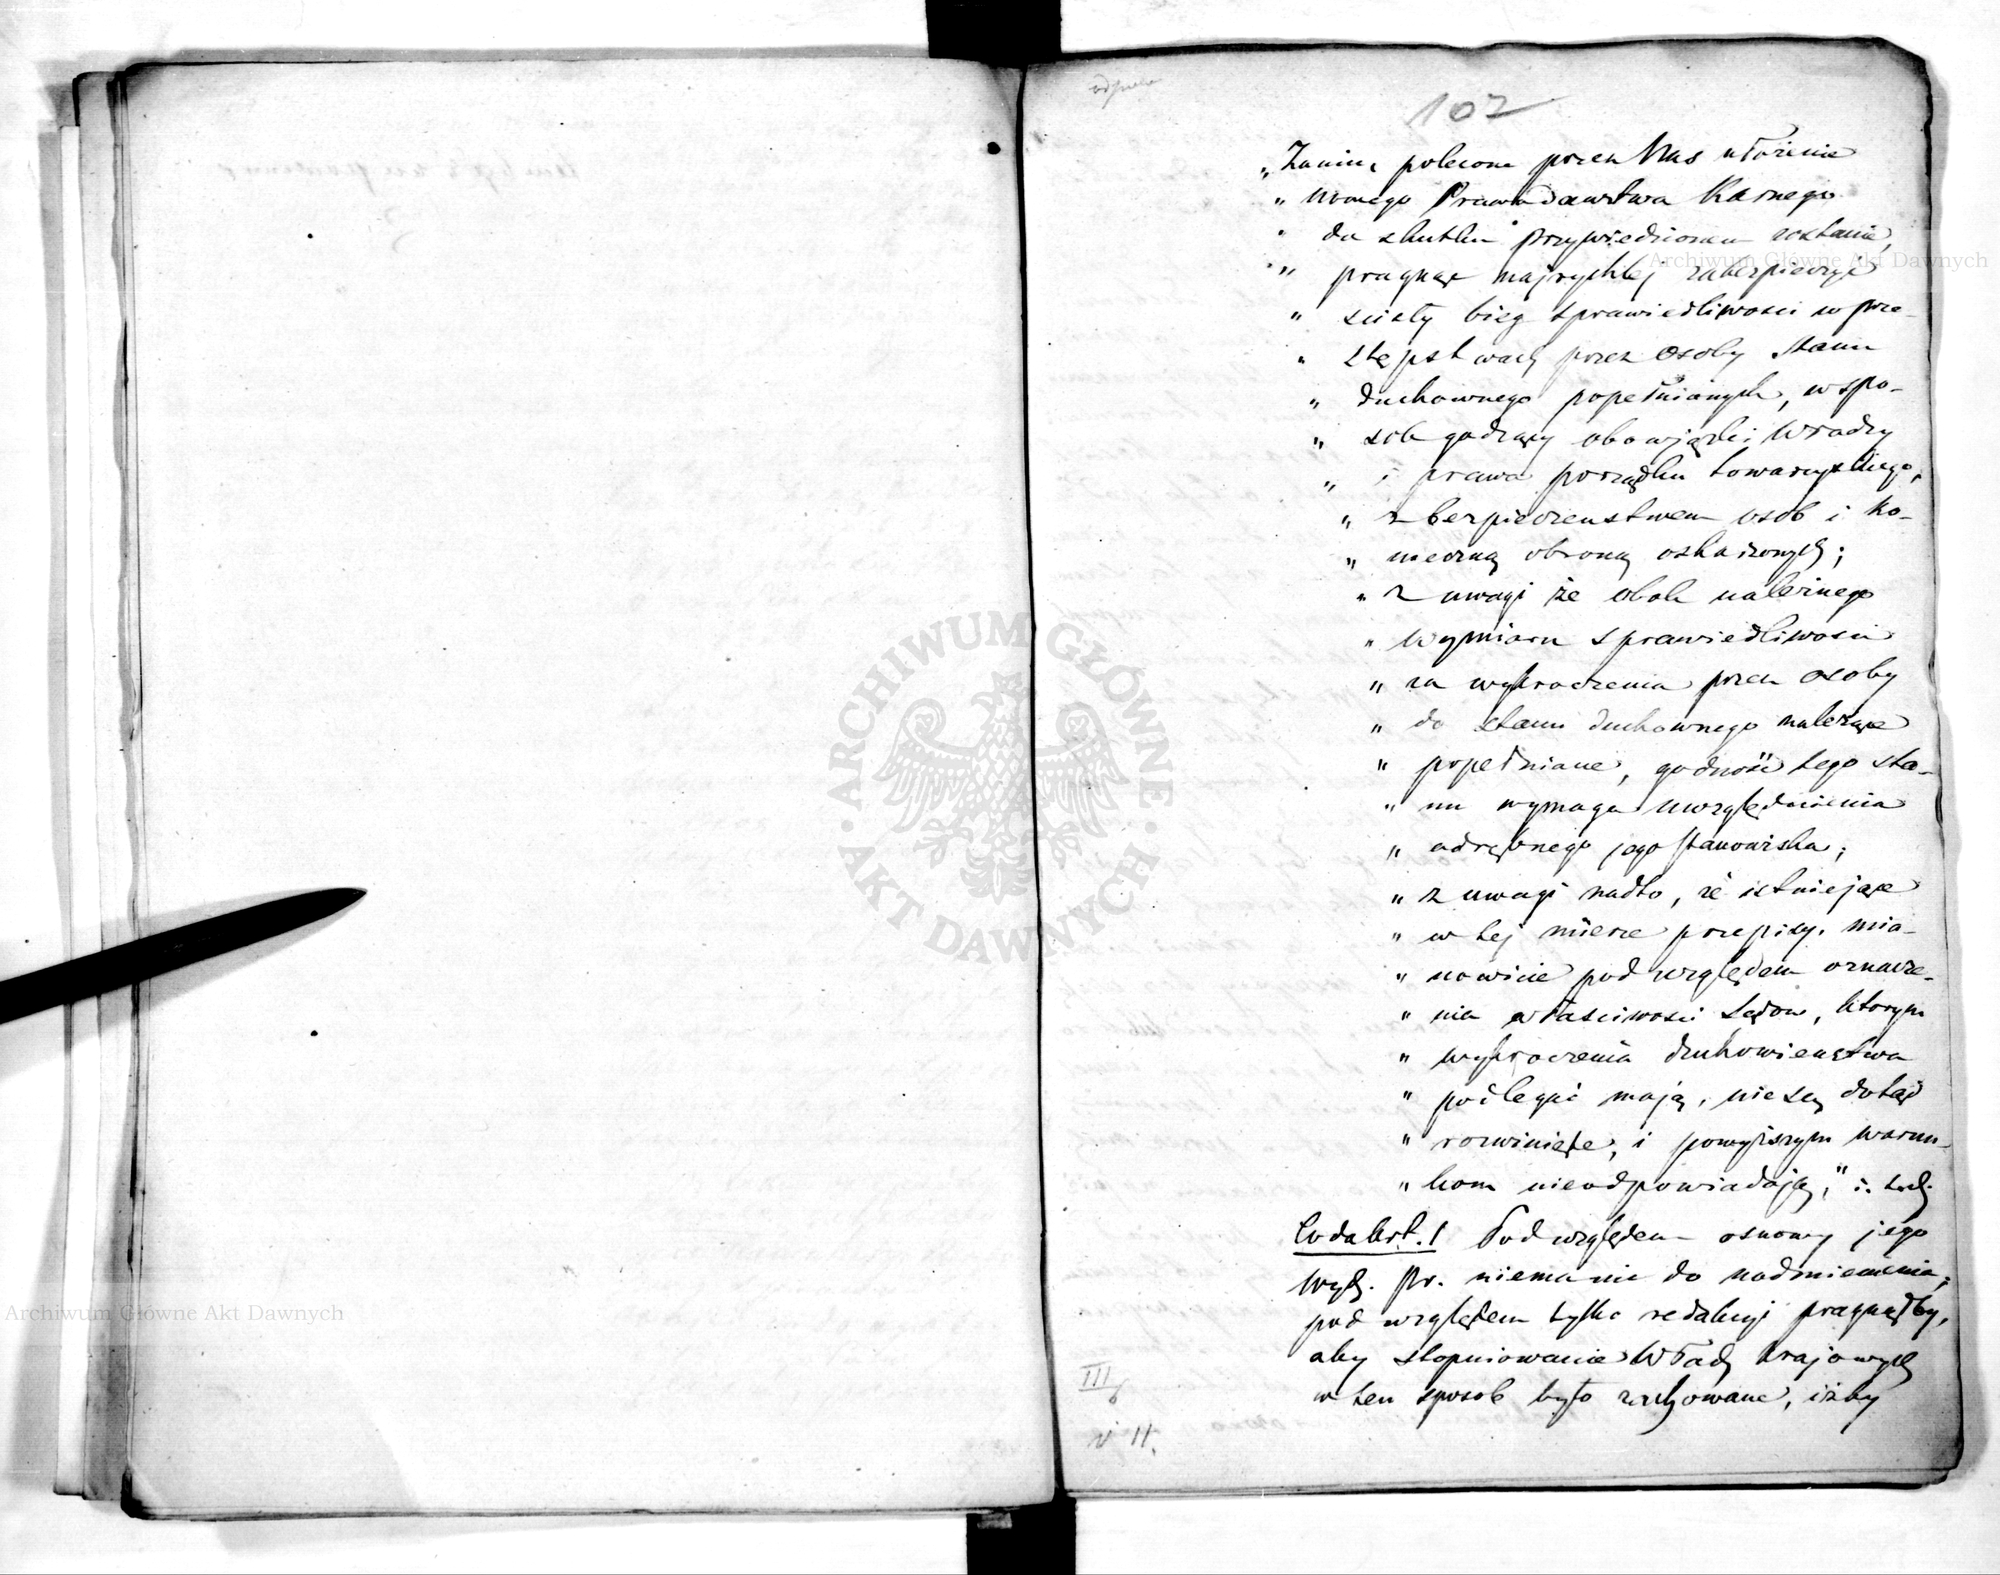 102
„Zanim polecone przez Nas ułożenie
„ nowego Prawodawstwa Karnego
„ do skutku przywiedzionem zostanie,
„ pragnąc najrychlej zabezpieczyć
„ scisły bieg sprawiedliwosci w prze-
„ stępstwach przez Osoby stanu
„ duchownego popełnianych, w spo-
„ sób godzący obowiązki Władzy
„ i prawa porządku towarzyskiego,
„ z bezpieczenstwem osób i ko-
„ nieczną obroną oskarzonych;
„ z uwagi że obok należnego
„ wymiaru sprawiedliwosci
„ za wykroczenia przez osoby
„ do stanu duchownego należące
„ popełniane, godność tego sta-
„ nu wymaga uwzględnienia
„ odrębnego jego stanowiska;
„ z uwagi nadto, że istniejące
„ w tej mierze przepisy, mia-
„ nowicie pod względem oznacze-
„ nia własciwosci Sądow, ktorym
„ wykroczenia duchowieństwa
„ podlegać mają, nie są dotąd
„ rozwinięte, i powyższym warun-
„ kom nieodpowiadają," i. t. d.
Co do Art. 1 Pod względem osnowy jego
Wydz. Pr. niema nic do nadmienienia,
pod względem tylko redakcyi pragnąłby,
aby stopniowanie Władz Krajowych
w ten sposob było zachowane, iżby
III
6
v 11.
ARCHIWUM GŁÓWNE
AKT DAWNYCH
Archiwum Główne Akt Dawnych
Archiwum Główne Akt Dawnych